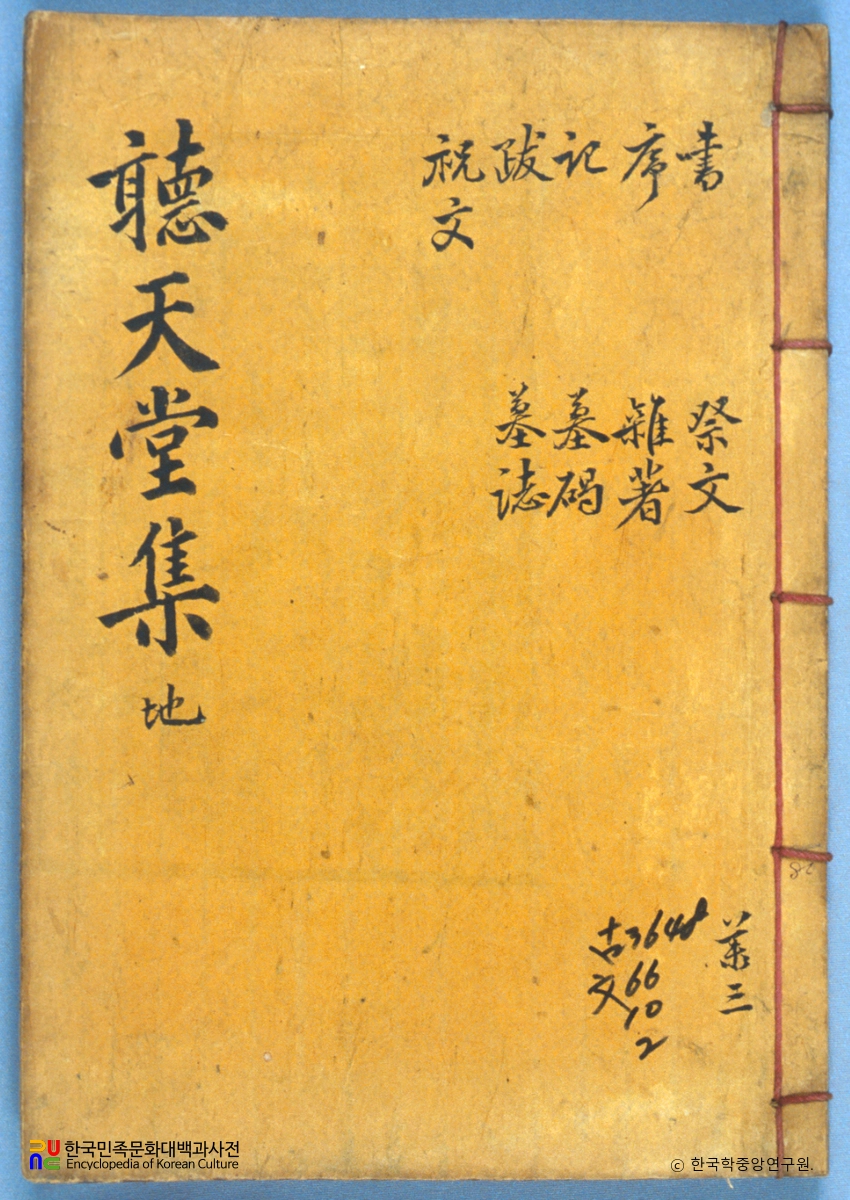 書
序
記
跋
祝文
祭文
雜著
墓碣
墓誌
聽天堂集 地
三
古文
3648
66
10
2
28
한국민족문화대백과사전
Encyclopedia of Korean Culture
© 한국학중앙연구원.